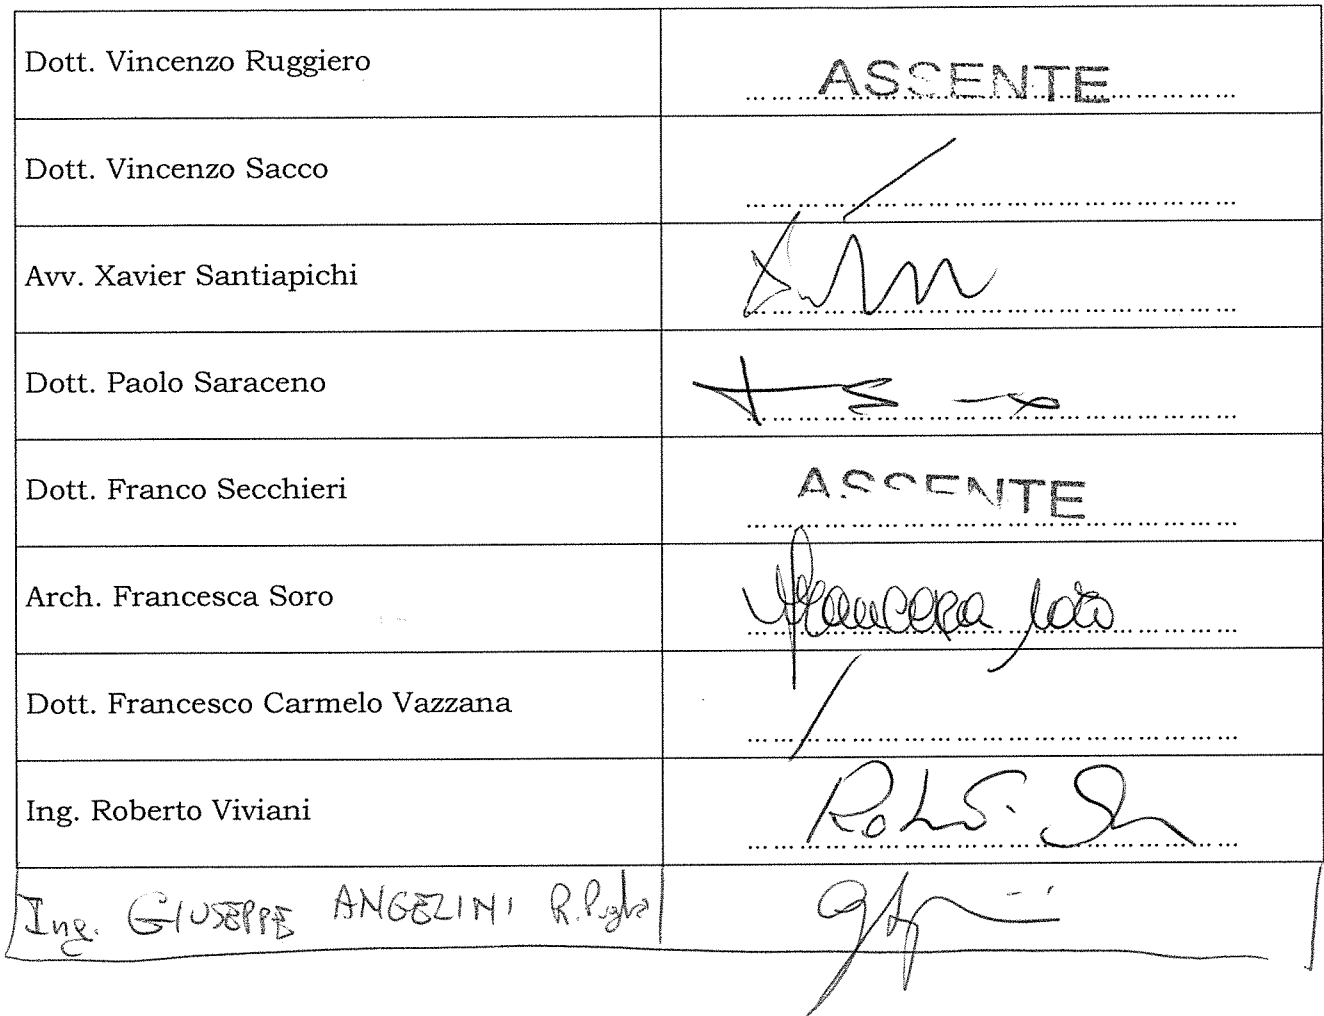 Dott. Vincenzo Ruggiero ASSENTE
Dott. Vincenzo Sacco
Avv. Xavier Santiapichi
Dott. Paolo Saraceno
Dott. Franco Secchieri ASSENTE
Arch. Francesca Soro Francesca Soro
Dott. Francesco Carmelo Vazzana
Ing. Roberto Viviani
Ing. GIUSEPPE ANGELINI R. Puglia